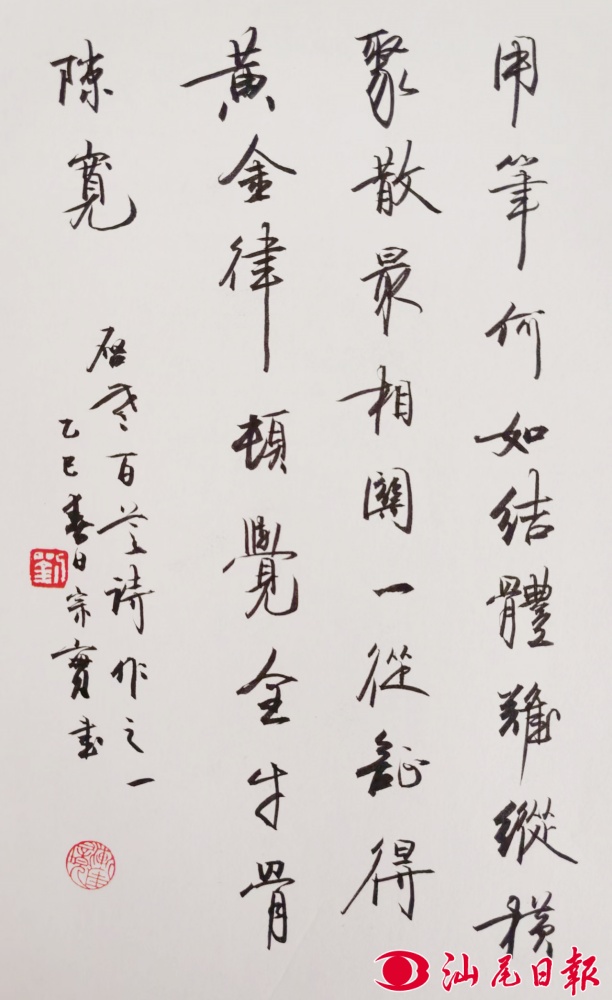 用筆何如結體難縱橫
聚散最相關一從証得
黃金律頓覺全牛骨
隙寬
啟老百首詩作之一
乙巳春日宗書
劉
汕尾日報